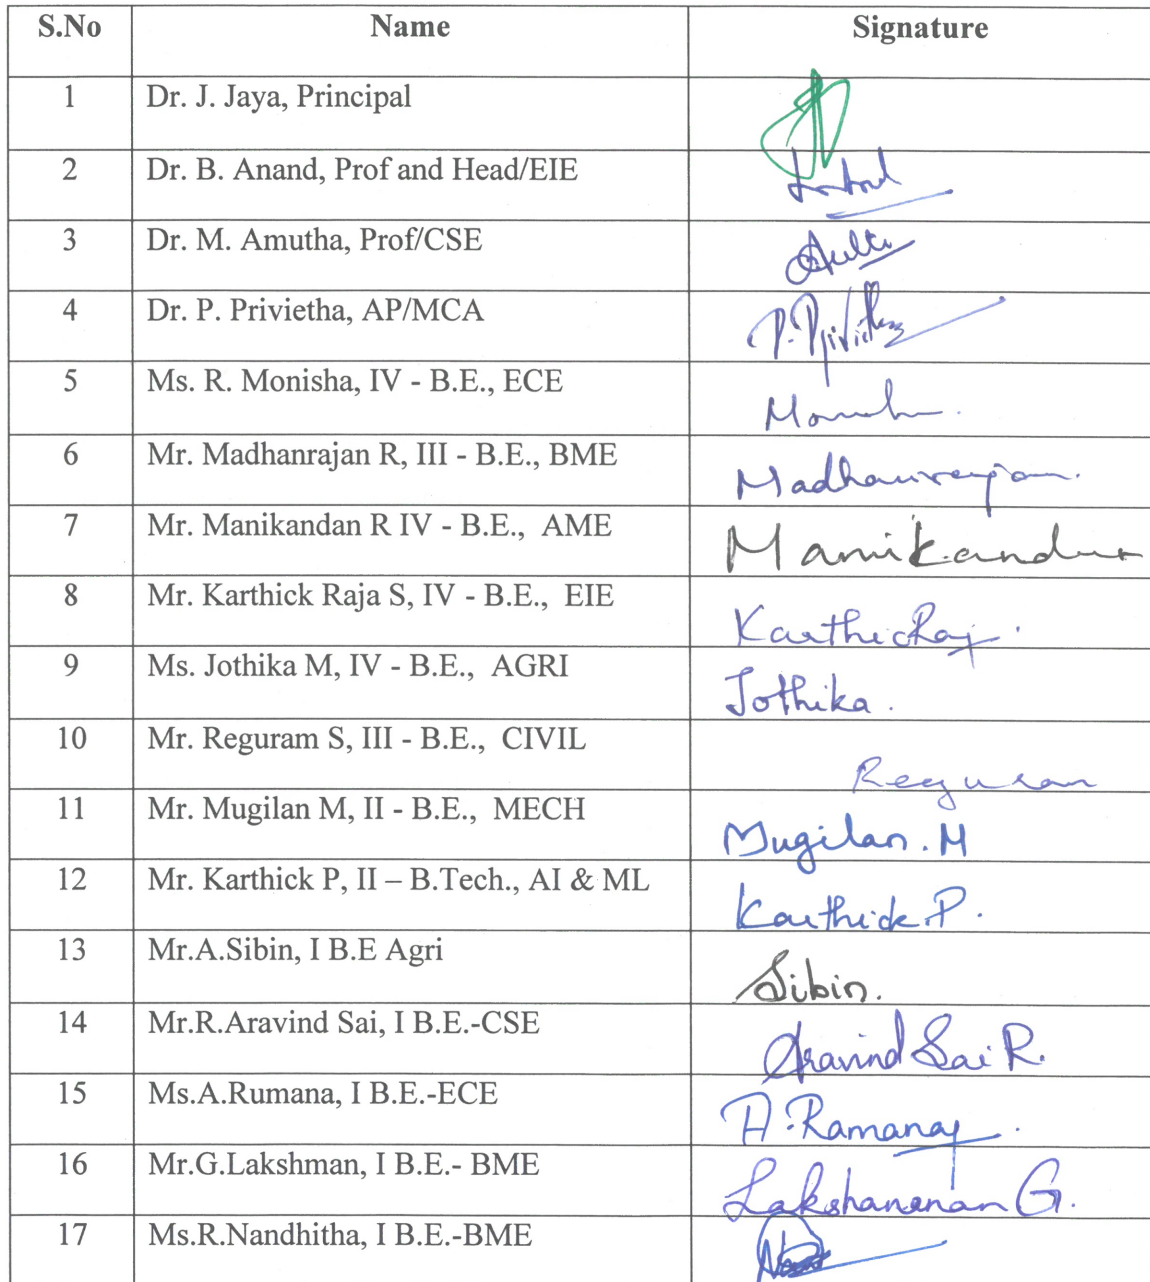 S.No Name Signature
1 Dr. J. Jaya, Principal
2 Dr. B. Anand, Prof and Head/EIE
3 Dr. M. Amutha, Prof/CSE
4 Dr. P. Privietha, AP/MCA P. Privietha
5 Ms. R. Monisha, IV - B.E., ECE
6 Mr. Madhanrajan R, III - B.E., BME Madhanrajan.
7 Mr. Manikandan R IV - B.E., AME Manikandan
8 Mr. Karthick Raja S, IV - B.E., EIE KarthicRaj.
9 Ms. Jothika M, IV - B.E., AGRI Jothika.
10 Mr. Reguram S, III - B.E., CIVIL Reguram
11 Mr. Mugilan M, II - B.E., MECH Mugilan. M
12 Mr. Karthick P, II – B.Tech., AI & ML Karthick.P.
13 Mr.A.Sibin, I B.E Agri Sibin.
14 Mr.R.Aravind Sai, I B.E.-CSE Aravind Sai R.
15 Ms.A.Rumana, I B.E.-ECE A.
16 Mr.G.Lakshman, I B.E.- BME G.
17 Ms.R.Nandhitha, I B.E.-BME